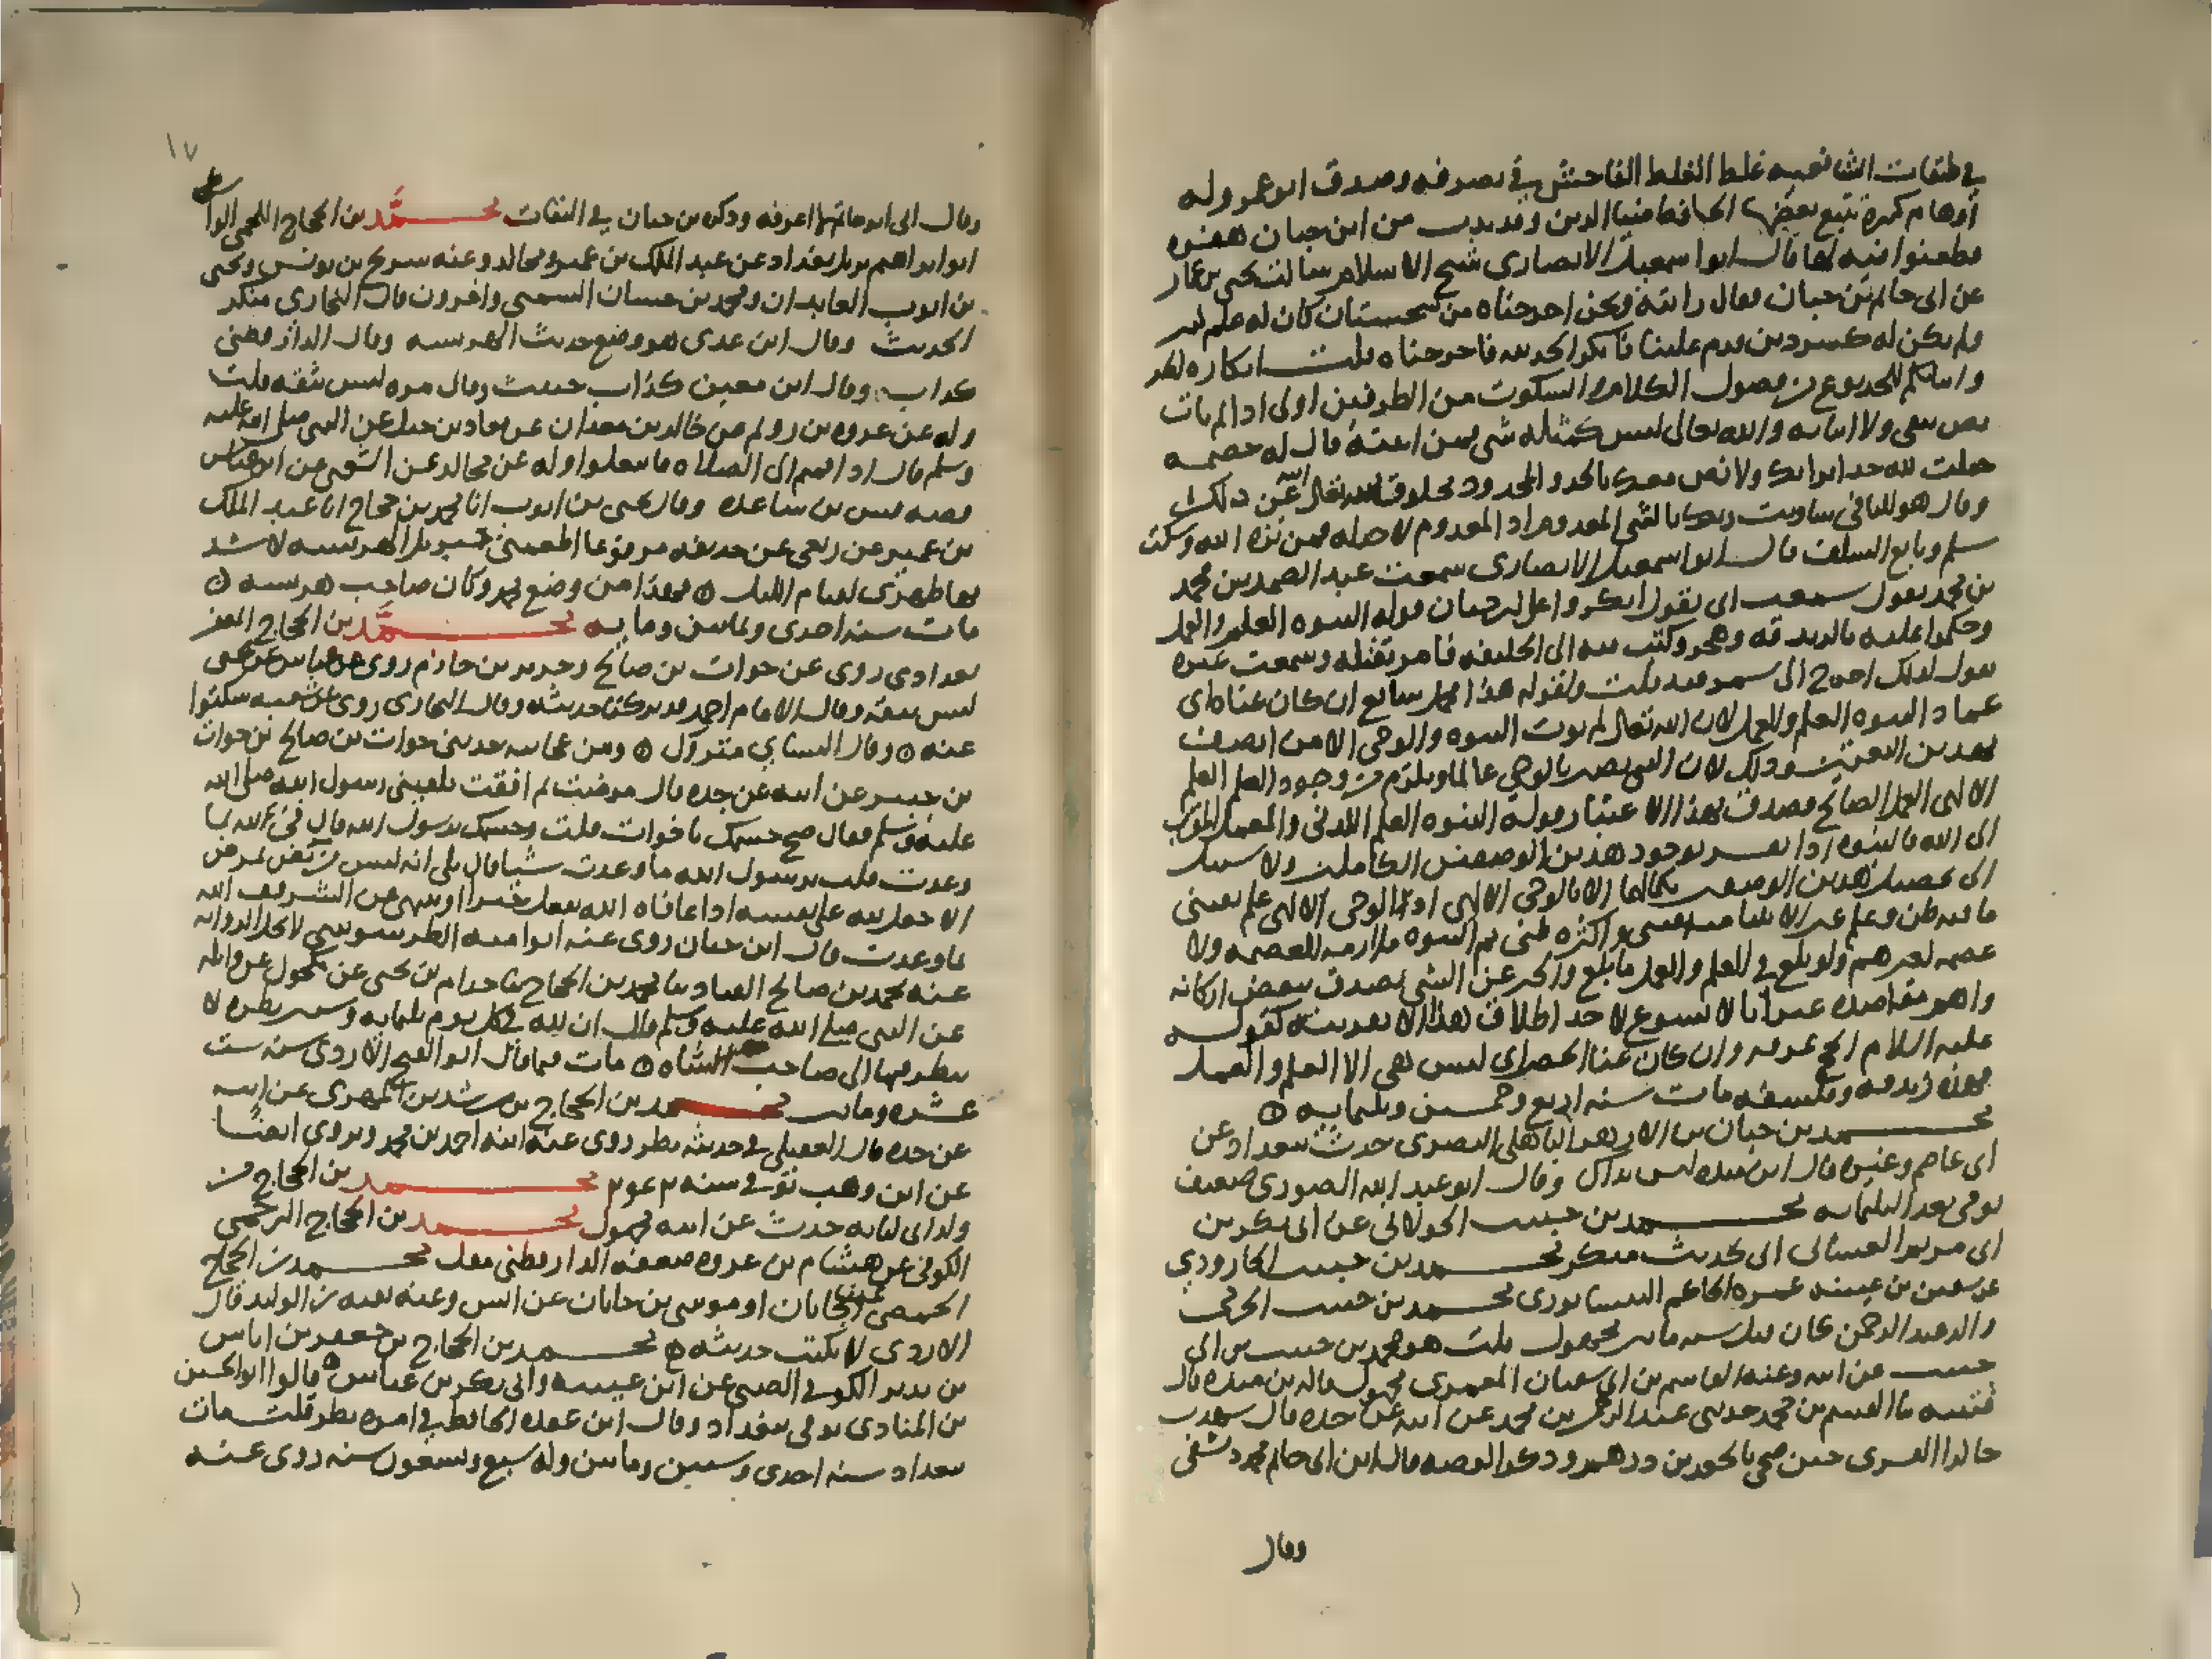 في طبقات الشافعيه غلط الغلط الفاحش في تصرفه وصدق ابو عمرو له
أوهام كثيرة تتبع بعضها الحافظ ضياالدين وقد بدت من ابن حبان هفوه
فطعنوا فيه لها قال ابوا سمعيل الانصاري شيخ الاسلام سالت يحيى بن عمار
عن ابى حاتم بن حبان فقال رايته ونحن اخرجناه من سجستان كان له علم كثير
ولم يكن له كبير دين قدم علينا فانكر الحد لله فاخرجناه قلت انكاره للحد
واثباتكم للحد نوع من فضول الكلام والسكوت من الطرفين اولى اذ لم يات
نص بنفي ولا اثباته والله تعالى ليس كمثله شي فمن اثبته قال له خصمه
جعلت لله حدا برايك ولا نص معك بالحد والمحدود مخلوق تعالى الله عن ذلك
وقال هو للنافي ساويت ربك بالشي المعدوم اذ المعدوم لا حد له فمن نزه الله وسكت
سلم وتابع السلف قال ابوا سمعيل الانصارى سمعت عبد الصمد بن محمد
بن محمد يقول سمعت ابى يقول انكروا على ابن حبان قوله النبوه العلم والعمل
وحكموا عليه بالزندقه وهجر وكتب فيه الى الخليفه فامر بقتله وسمعت غيره
يقول لذلك اخرج الى سمرقند قلت ولقوله هذا محمل سايغ ان كان عناه اى
عماد النبوه العلم والعمل لان الله تعالى لم يوت النبوه والوحى الا من اتصف
بهذين النعتين وذلك لان النبى يصير بالوحى عالما ويلزم من وجود العلم
الالهى العمل الصالح فصدق بهذا الاعتبار قوله النبوه العلم اللدنى والعمل المقرب
الى الله فالنبوه اذا تفسر بوجود هذين الوصفين الكاملين ولا سبيل
الى تحصيل هذين الوصفين بكمالهما الا بالوحى الالهى اذ الوحى الالهى علم يقينى
ما فيه ظن وعلم غير الانبيا منه يقينى واكثره ظنى ثم النبوه ملازمه للعصمه ولا
عصمه لغيرهم ولو بلغ في العلم والعمل ما بلغ والخبر عن الشى يصدق ببعض اركانه
واهم مقاصده غير انا لا نسوغ لاحد اطلاق هذا الا بقرينه كقوله
عليه السلام الحج عرفه وان كان عنا الحصر اى ليس هى الا العلم والعمل
فهذه زندقه وفلسفه مات سنه اربع وخمسين وثلثمايه ⊙
محمد بن حبان بن الازهر الباهلى البصرى حدث ببغداد عن
ابى عاصم وغيره قال ابن منده ليس بذاك وقال ابو عبد الله الصورى ضعيف
توفى بعد الثلثمايه محمد بن حبيب الخولانى عن ابى بكر بن
ابى مريم الغسانى اتى بحديث منكر محمد بن حبيب الجارودي
عن سفين بن عيينه غمزه الحاكم النيسابورى محمد بن حبيب الجرمى
والد عبد الرحمن كان قبل سنه مايه مجهول قلت هو محمد بن حبيب بن ابى
حبيب عن ابيه وعنه القاسم بن ابى سفيان المعمرى مجهول قاله بن منده قال
قتيبه نا القسم بن محمد حدثنى عبد الرحمن بن محمد عن ابيه عن جده قال شهدت
خالدا القسرى حين ضحى بالجعد بن درهم وذكر القصه قال ابن ابى حاتم محمد دمشقى
وقال
١٧
وقال ابى ابو حاتم لا اعرفه وذكره بن حبان في الثقات محمد بن الحجاج اللخمى الواسطي
ابو ابراهيم نزيل بغداد عن عبد الملك بن عمير ومجالد وعنه سريج بن يونس ويحيى
بن ايوب العابدان ومحمد بن حسان السمتى واخرون قال البخارى منكر
الحديث وقال ابن عدى هو وضع حديث الهريسه وقال الدارقطنى
كذاب وقال ابن معين كذاب خبيث وقال مره ليس بثقه قلت
وله عن عروه بن رويم عن خالد بن معدان عن معاذ بن جبل عن النبى صلى الله عليه
وسلم قال اذا قمتم الى الصلاه فانتعلوا وله عن مجالد عن الشعبى عن ابن عباس
قصه قس بن ساعده وقال يحيى بن ايوب انا محمد بن حجاج انا عبد الملك
بن عمير عن ربعى عن حذيفه مرفوعا اطعمنى جبريل الهريسه لاشد
بها ظهرى لقيام الليل ⊙ فهذا من وضع محمد وكان صاحب هريسه ⊙
مات سنه احدى وثمانين ومايه محمد بن الحجاج المصفر
بغدادى روى عن خوات بن صالح وجرير بن حازم روى عباس عن يحيى
ليس بثقه وقال الامام احمد قد تركنا حديثه وقال البخارى روى عن شعبه سكتوا
عنه ⊙ وقال النساي متروك ⊙ ومن عجايبه حدثنى خوات بن صالح بن خوات
بن جبير عن ابيه عن جده قال مرضت ثم افقت فلقينى رسول الله صلى الله
عليه وسلم فقال صح جسمك يا خوات قلت وجسمك يرسول الله قال فى لله بما
وعدت قلت يرسول الله ما وعدت شيا قال بلى انه ليس من مريض يمرض
الا جعل لله على نفسه اذا عافاه الله يفعل خيرا او ينتهى عن الشر فف لله
بما وعدت قال ابن حبان روى عنه ابو اميه الطرسوسى لا تحل الروايه
عنه محمد بن صالح العباد ثنا محمد بن الحجاج ثنا حزام بن يحيى عن مكحول عن واثله
عن النبى صلى الله عليه وسلم قال ان لله في كل يوم ثلثمايه وستين نظره لا
ينظر فيها الى صاحب الشاه ⊙ مات فيما قال ابو الفتح الازدى سنه ست
عشره ومايتين محمد بن الحجاج بن رشدين المهرى عن ابيه
عن جده قال العقيلى في حديثه نظر روى عنه ابنه احمد بن محمد ويروى ايضا
عن ابن وهب توفي سنه ٢٤٢ محمد بن الحجاج من
ولد ابى لبابه حدث عن ابيه مجهول محمد بن الحجاج البرجمى
الكوفى عن هشام بن عروه ضعفه الدارقطنى محمد بن الحجاج
الحمصى عن جابان او موسى بن جابان عن انس وعنه بقيه بن الوليد قال
الازدى لا يكتب حديثه ⊙ محمد بن الحجاج بن جعفر بن اياس
بن نذير الكوفي الضبى عن ابن عيينه وابى بكر بن عياش قال ابو الحسين
بن المنادى توفى ببغداد وقال ابن عقده الحافظ في امره نظر قلت مات
ببغداد سنه احدى وستين ومايتين وله سبع وتسعون سنه روى عنه